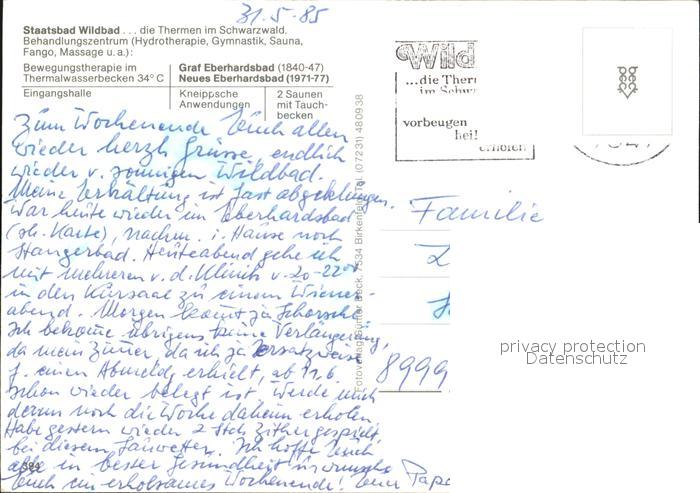 31.5.85
Staatsbad Wildbad ... die Thermen im Schwarzwald.
Behandlungszentrum (Hydrotherapie, Gymnastik, Sauna,
Fango, Massage u.a.):
Bewegungstherapie im
Thermalwasserbecken 34° C
Graf Eberhardsbad (1840-47)
Neues Eberhardsbad (1971-77)
Eingangshalle
Kneippsche
Anwendungen
2 Saunen
mit Tauch-
becken
Zum Wochenende Euch allen
wieder herzl. Grüsse, endlich
wieder v. sonnigen Wildbad.
Meine Erkältung ist fast abgeklungen.
War heute wieder im Eberhardsbad
(sh. Karte), nachm. i. Hause noch
Stangerbad. Heuteabend gehe ich
mit mehreren v. d. Klinik v. 20-22°°
in den Kursaal zu einem Wiener-
abend. Morgen kommt ja Schorsch.
Ich bekomme übrigens keine Verlängerung,
da mein Zimmer, da ich ja Ersatzweise
f. einen Abmeldg erhielt, ab 11.6.
schon wieder belegt ist. Werde mich
dann noch die Woche daheim erholen.
Habe gestern wieder 2 Std Zither gespielt,
bei diesem Sauwetter. Ich hoffe Euch
alle in bester Gesundheit u. wünsche
Euch ein erholsames Wochenende! Euer Papa
394
Fotoverlag Günter Beck, 7534 Birkenfeld, Tel. (07231) 480938
Wild
...die Ther
im Schwa
vorbeugen
heil
erholen
beck
Familie
8999
privacy protection
Datenschutz